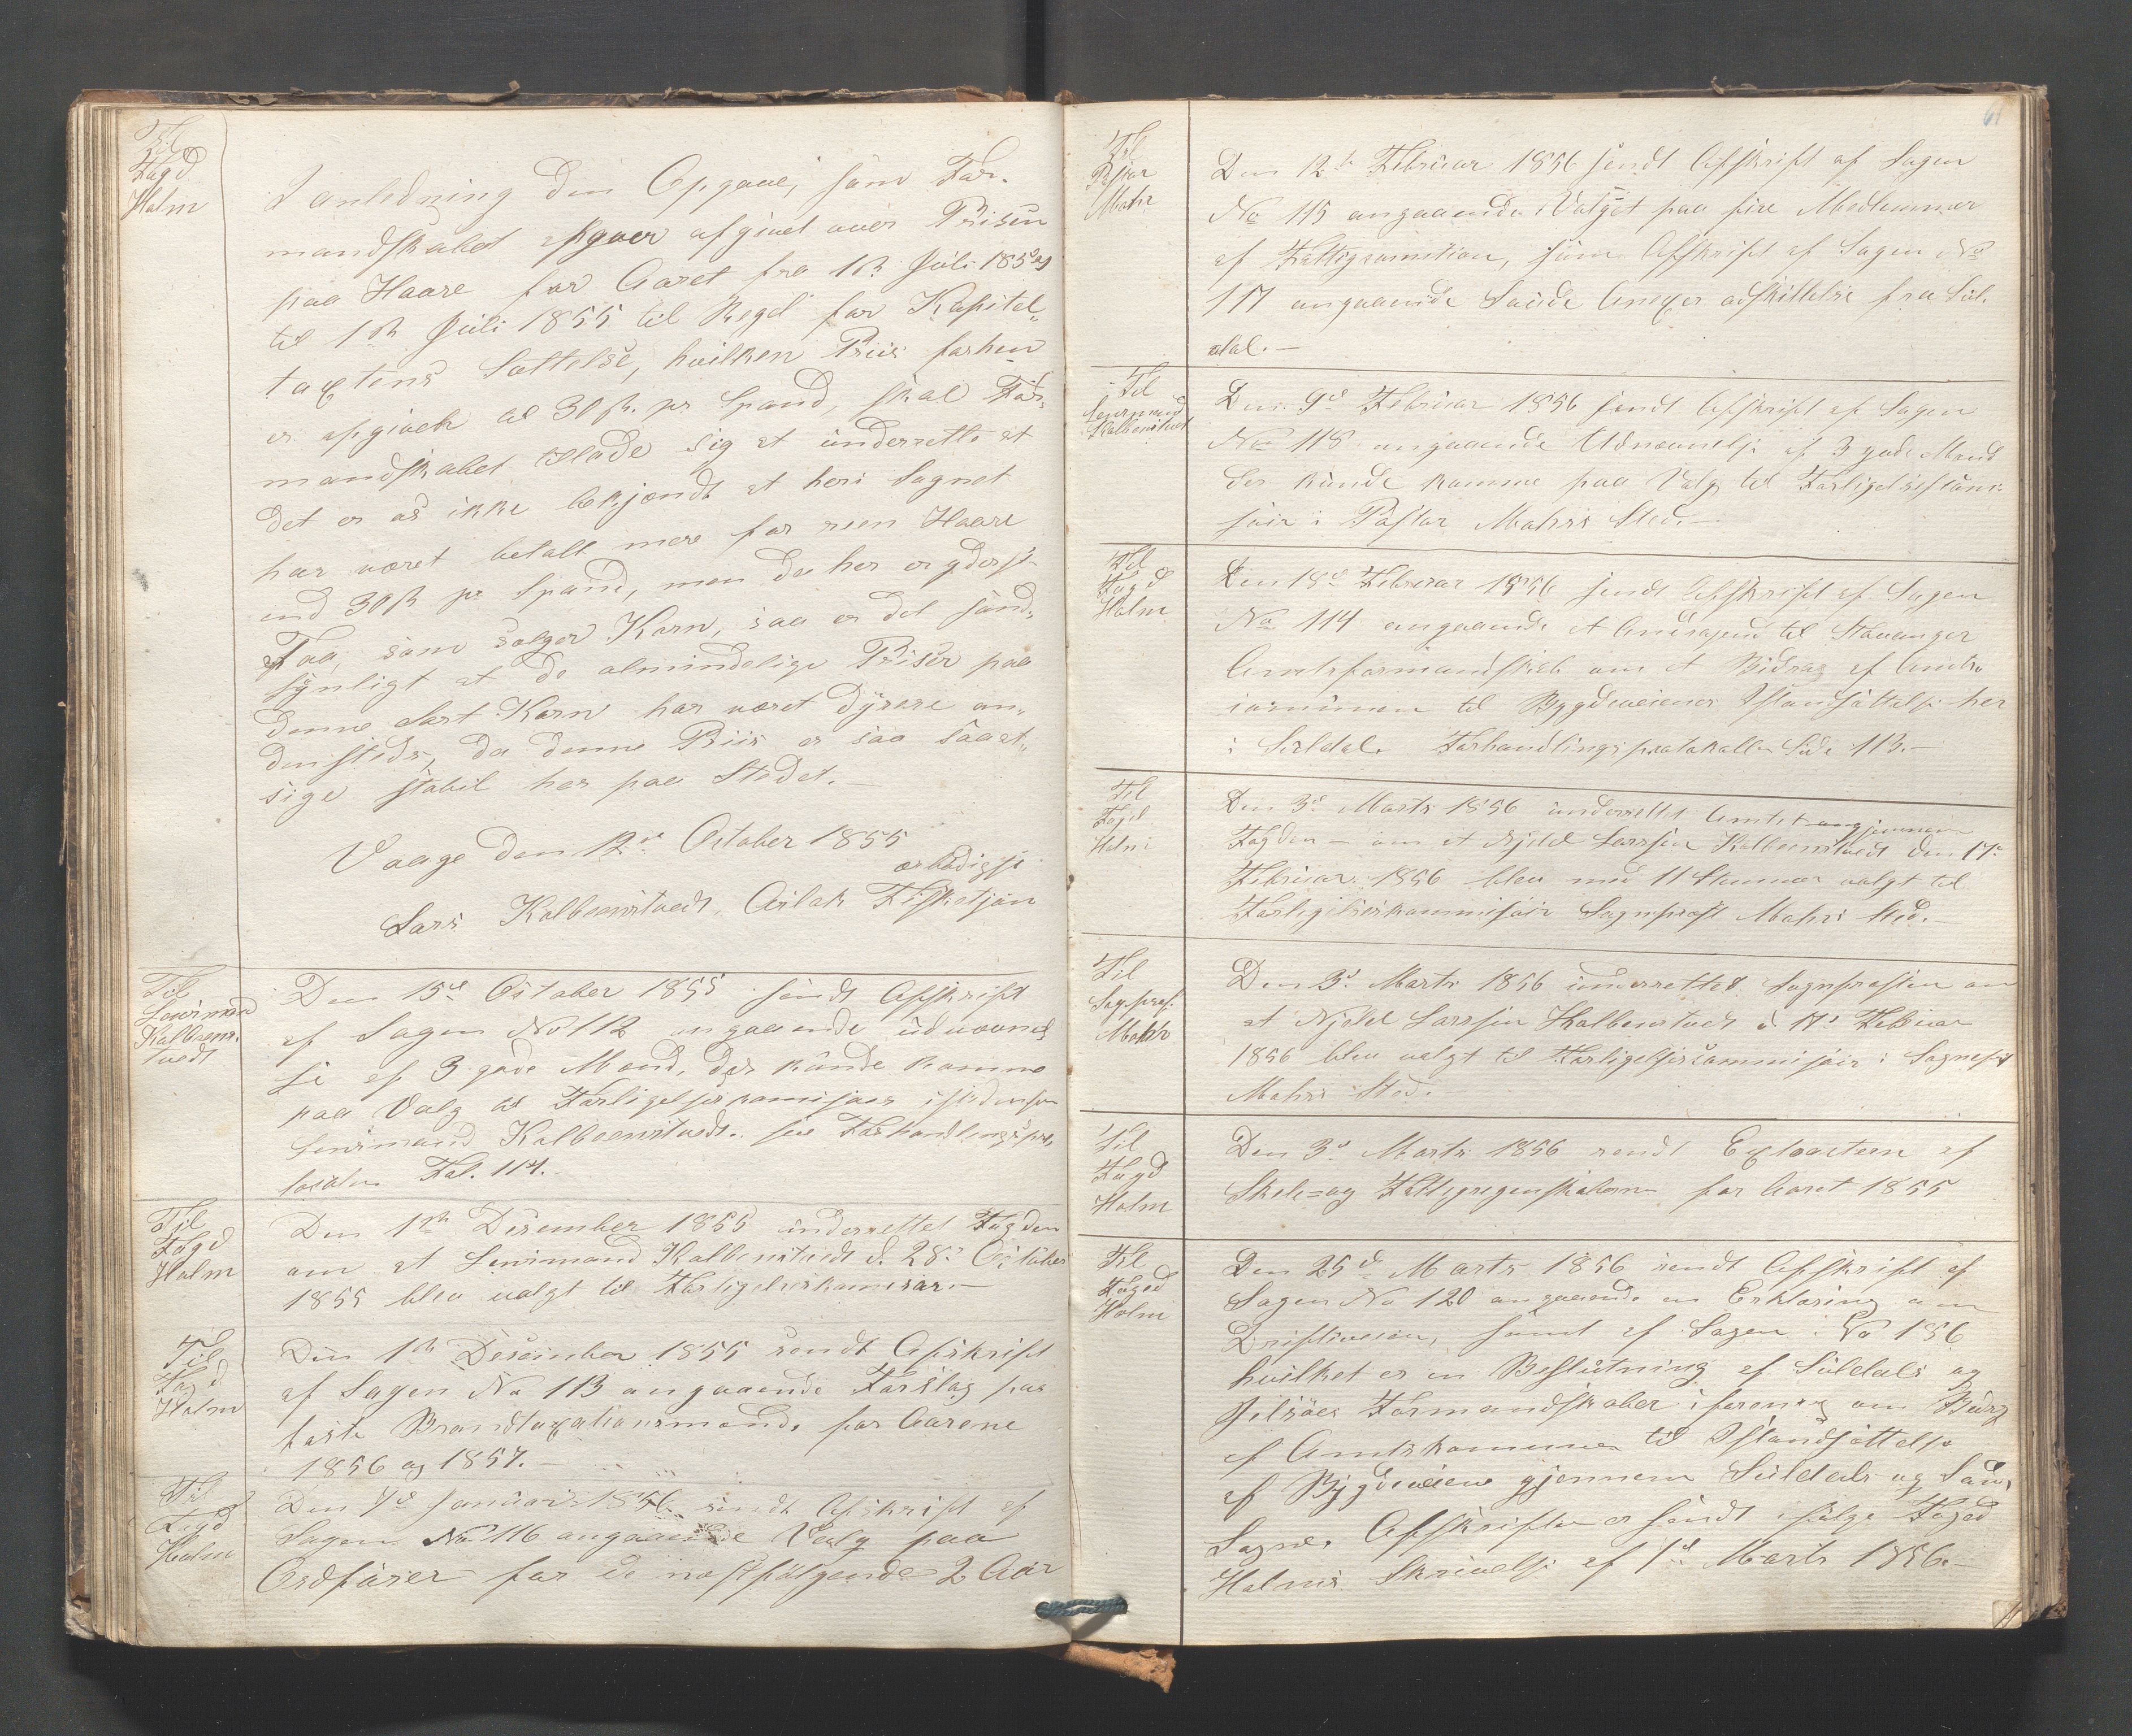 Til
Fogd
Holm
I anledning den Opgave, som For-
mandskabet afgver afgivet over Prisen
paa Haore for Aaret fra 1ste Juli 1854
til 1ste Juli 1855 til Regel for Kapitel-
taxtens Sættelse, hvilken Priis forhen
er opgivet til 30 ß. pr Spand, skal For-
mandskabet tillade sig at underrette at
det er os ikke bekjendt at her i Sognet
har været betalt mere for reen Haore
end 30 ß pr Spand, men da her er yderst
Faa, som sælger Korn, saa er det sand-
synligt at de almindelige Priser paa
denne Sort Korn har været dyrere an-
densteds, da denne Priis er saa saaat-
sige stabil her paa Stedet.
Vaage den 12te October 1855
ærbødigst
Lars Kolbeenstvedt, Aslak Fisketjøn
Til
Lensmand
Kolbeens-
tvedt
Den 15de October 1855 sendt Afskrift
af Sagen No 112 angaaende udnævnel-
se af 3 gode Mænd, der kunde komme
paa Valg til Forligelseskomisjær istedenfor
Lensmand Kolbeenstvedt. see Forhandlingspro-
tocolen Fol. 114.
Til
Fogd
Holm
Den 1ste Desember 1855 underrettet Fogden
om at Lensmand Kolbenstvedt d. 28de October
1855 blev valgt til Forligelseskomisær.-
Til
Fogd
Holm
Den 1ste Desember 1855 sendt Afskrift
af Sagen No 113 angaaende Forslag paa
faste Brandtaxationsmænd for Aarene
1856 og 1857.-
Til
Fogd
Holm
Den 7de Januari 1856 sendt Afskrift af
Sagen No 116 angaaende Valg paa
Ordfører for de næstfølgende 2 Aar
Til
Pastor
Mohr
Den 12te Februar 1856 sendt Afskrift af Sagen
No 115 angaaende Valget paa fire Medlemmer
af Fattigcomition, samt Afskrift af Sagen No
117 angaaende Saude Anexes adskillelse fra Sul-
dal.-
Til
Lensmand
Kolbenstvedt
Den 9de Februar 1856 sendt Afskrift af Sagen
No 118 angaaende Udnævnelse af 3 gode Mænd
der kunde komme paa Valg til Forligelsescomi-
sair i Pastor Mohrs Sted.-
Til
Fogd
Holm
Den 18de Februar 1856 sendt Afskrift af Sagen
No 114 angaaende et Andragend til Stavanger
Amtsformandskab om et Bidrag af Amts-
comunen til Bygdeveienes Istandsættelse her
i Suldal. Forhandlingsprotokollen Side 113.-
Til
Fogd
Holm
Den 3de Marts 1856 underrettet Amtet gjennem
Fogden - om at Njeld Larssen Kolbeenstvedt den 17de
Februar 1856 blev med 11 Stemmer valgt til
Forligelseskommisair Sognprest Mohrs Sted.-
Til
Sognprest
Mohr
Den 3de Marts 1856 underrettet Sognpresten om
at Njeld Larssen Kolbenstvedt d. 17de Februar
1856 blev valgt til Forligelsescommisair i Sognepst
Mohrs Sted.-
Til
Fogd
Holm
Den 3de Marts 1856 sendt Extracten af
Skole- og Fattigregenskaberne for Aaret 1855
Til
Foged
Holm
Den 25de Marts 1856 sendt Afskrift af
Sagen No 120 angaaende en Erklæring om
Driftiveien, samt af Sagen No 156
hvilket er en Beslutning af Suldals og
Jelsøes Formandskaber i forening om Bidrag
af Amtskomunen til Istandsættelse
af Bygdeveiene gjennem Suldals og Sand
Sogne. Afskriften er sendt ifølge Foged
Holms Skrivelse af 1de Marts 1856.-